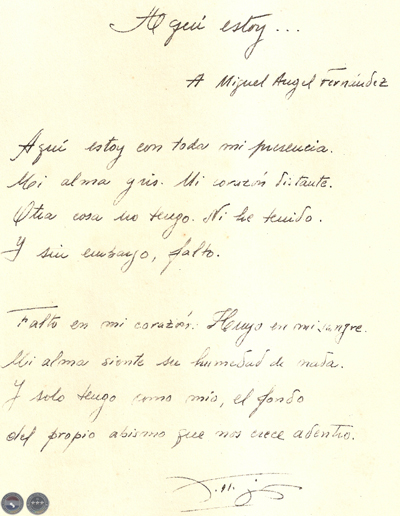 Aquí estoy...
A Miguel Angel Fernández
Aquí estoy con toda mi presencia.
Mi alma gris. Mi corazón distante.
Otra cosa no tengo. Ni he tenido.
Y sin embargo, falto.
Falto en mi corazón. Huyo en mi sangre.
Mi alma siente su humedad de nada.
Y solo tengo como mío, el fondo
del propio abismo que nos crece adentro.